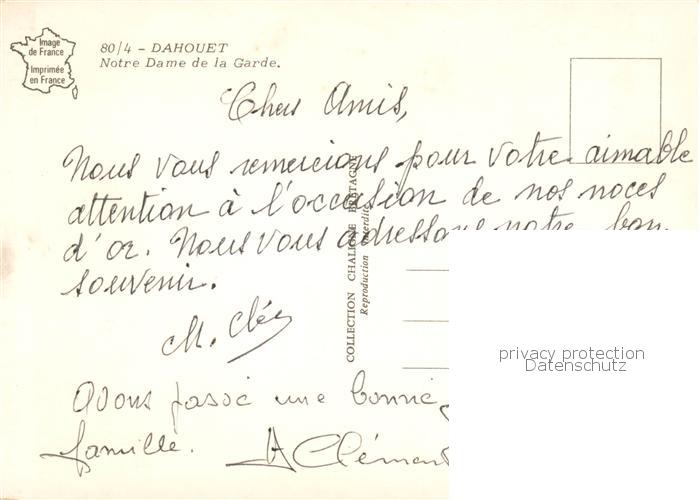 Image
de France
Imprimée
en France
80/4 – DAHOUET
Notre Dame de la Garde.
Chers Amis,
Nous vous remercions pour votre aimable
attention à l'occasion de nos noces
d'or. Nous vous adressons notre bon
souvenir.
M. Clé
Avons passé une bonne
famille. A Clément
COLLECTION CHALIGNE BRETAGNE
Reproduction interdite
privacy protection
Datenschutz